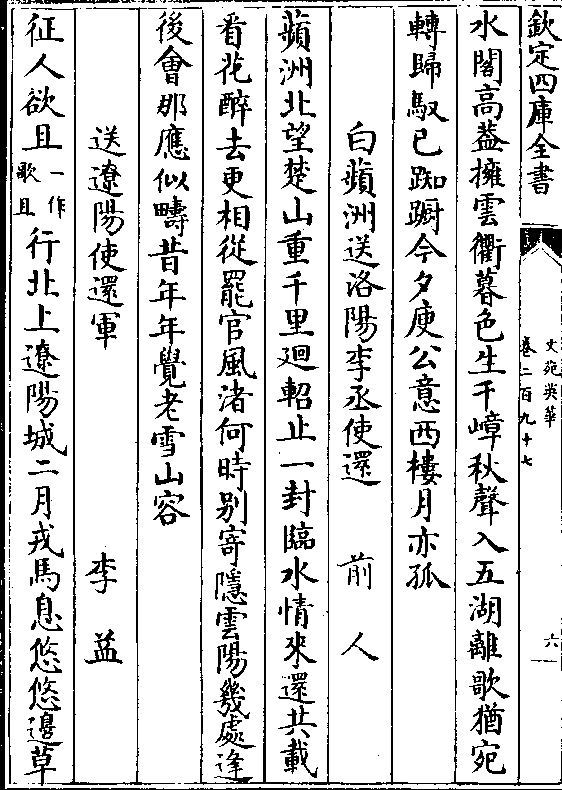 欽定四庫全書
文苑英華
卷二百九十七
六
水閣高葢擁雲衢暮色生千嶂秋聲入五湖離歌猶宛
轉歸馭已踟蹰今夕庾公意西樓月亦孤
白蘋洲送洛陽李丞使還　前人
蘋洲北望楚山重千里廻軺止一封臨水情來還共載
看花醉去更相從罷官風渚何時别寄隱雲陽幾處逢
後會那應似疇昔年年覺老雪山容
送遼陽使還軍　李益
征人欲且一作歌且行北上遼陽城二月戎馬息悠悠邊草